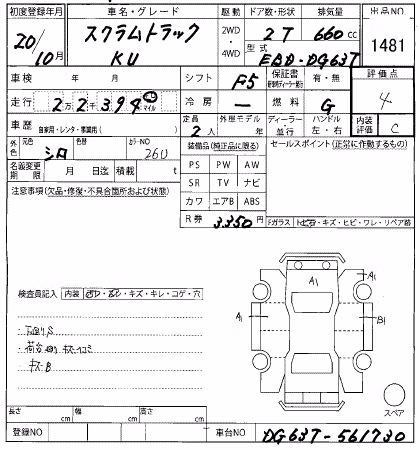 初度登録年月 車名・グレード 駆動 ドア数・形状 排気量 出品NO
20/10月 スクラムトラック 2WD・4WD 2 T 660 cc 1481
KU 型式 EBD-DG63T
車検 年 月 シフト F5 保証書 有・無 評価点
走行 2万2千399 km マイル 冷房 ー 燃料 G 4
車歴 自家用・レンタ・事業用( ) 定員 2人 外国モデル 年 ディーラー・並行 ハンドル 左・右 内装評価 C
外色 元色 シロ 色替 カラーNO 26U 装備品(純正品に限る) セールスポイント(正常に作動するもの)
名義変更期限 月 日迄 積載 t PS PW AW
注意事項(欠品・修復・不具合箇所および状態) SR TV ナビ
カワ エアB ABS
R券 3,350円 Fガラス トビ石・キズ・ヒビ・ワレ・リペア跡
検査員記入 内装 キズ・キレ・コゲ・穴
A1 A1
A1 B1
キズB
スペア
長さ cm 幅 cm 高さ cm
登録NO 車台NO DG63T-561730